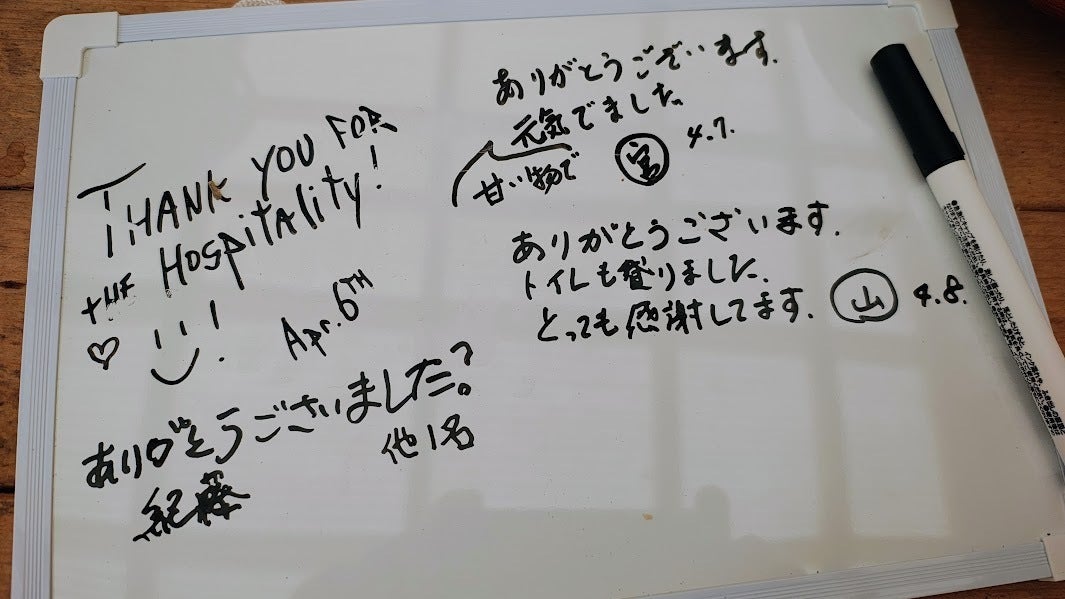 THANK YOU FOR
THE HOSPITALITY!
Apr. 6TH
ありがとうございました?
他1名
紀藤
ありがとうございます.
元気でました。
甘い物で
宮 4.7.
ありがとうございます.
トイレも登りました.
とっても感謝してます. 山 4.8.